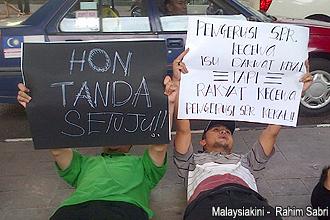 HON
TANDA
SETUJU!!
PENGERUSI SPR
KECEWA
ISU DAKWAT KEKAL
TAPI
RAKYAT KECEWA
PENGERUSI SPR KEKAL!!
Malaysiakini - Rahim Sabri